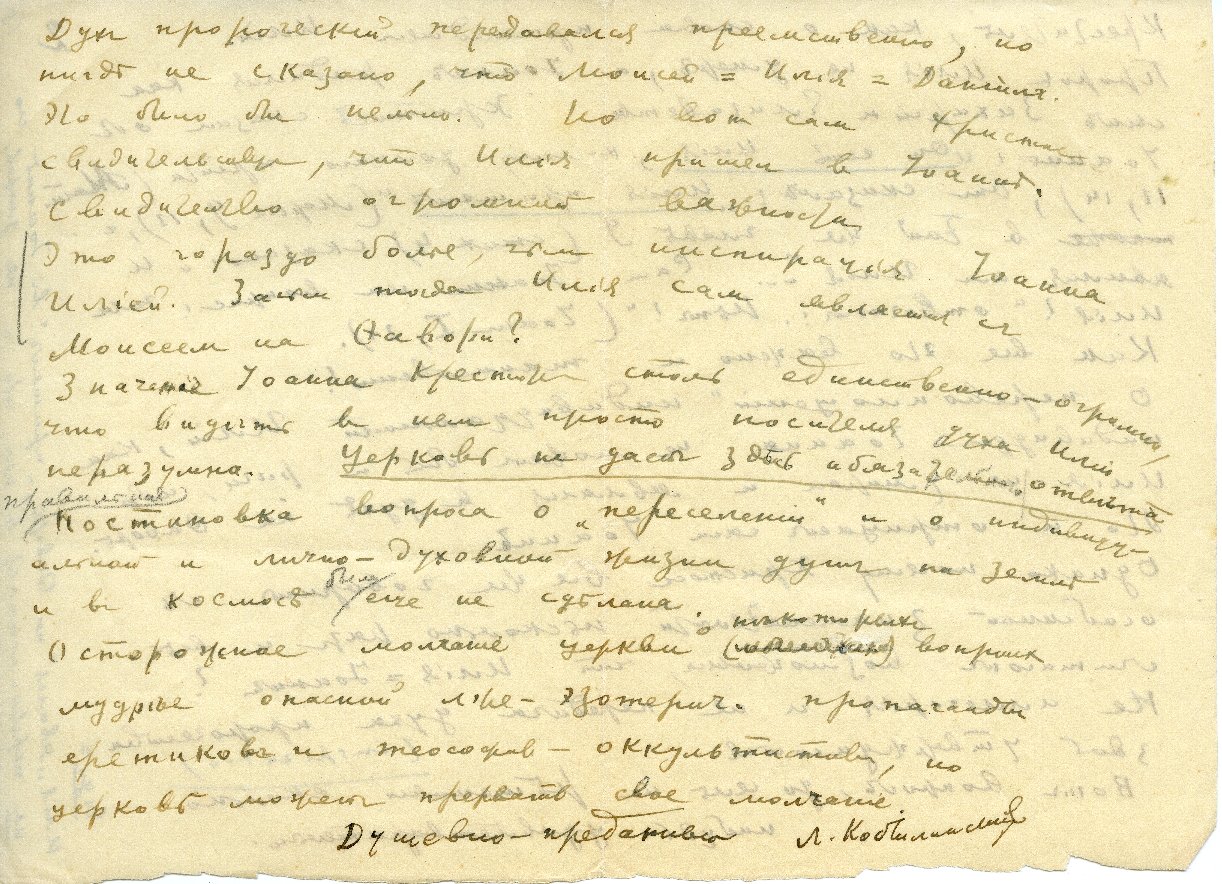 Дух пророческiй передавался преемственно, но
нигдѣ не сказано, что Моисей = Илiя = Данiилъ.
Это было бы нелѣпо. Но вот сам Христос
свидѣтельствует, что Илiя пришел в Iоаннѣ.
Свидѣтельство огромной важности
Это гораздо болѣе, чѣм инспирацiя Iоанна
Илiей. Зачѣм тогда Илiя сам является съ
Моисеем на Ѳаворѣ?
Значенiе Iоанна Крестителя столь единственно-огромно,
что видѣть в нем просто носителя духа Илiи
неразумно. Церковь не даетъ здѣсь обязательнаго отвѣта
правильная
Постановка вопроса о „переселенiи" и о индивиду-
альной и лично-духовной жизни душ на землѣ
и в космосѣ была еще не сдѣлана.
Осторожное молчанiе церкви о нѣкоторых вопросах
мудрѣе опасной лже-эзотерич. пропаганды
еретиковъ и теософов-оккультистовъ, но
церковь может прервать свое молчанiе.
Душевно-преданный Л. Кобылинскiй